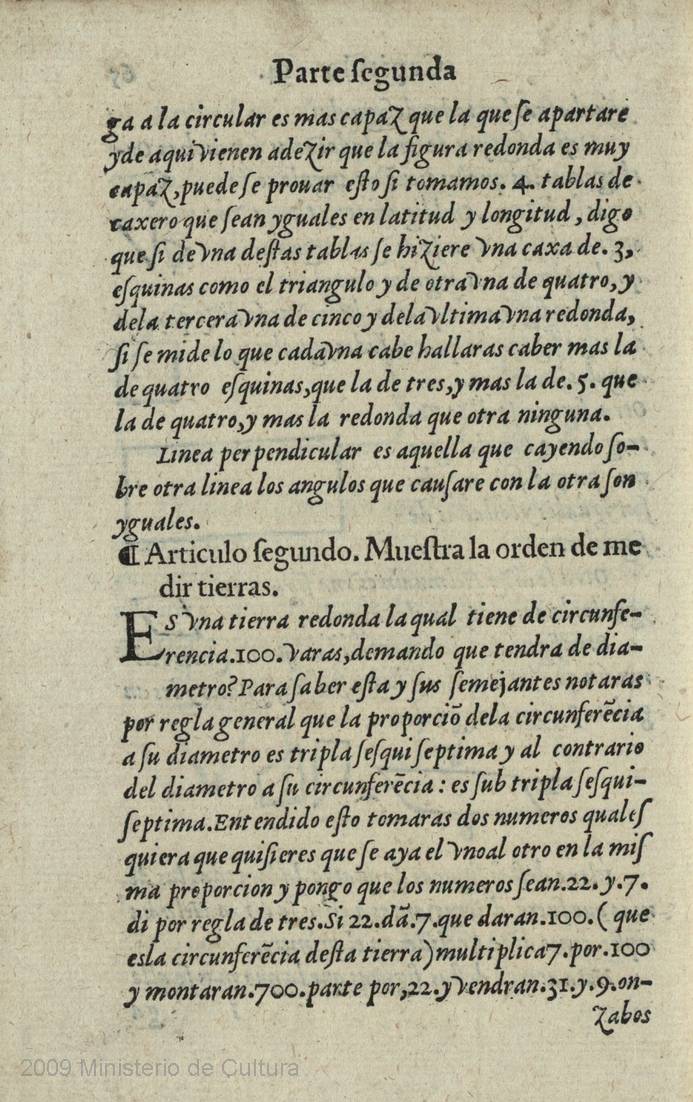 Parte ſegunda
ga a la circular es mas capaz que la que ſe apartare
yde aqui vienen adezir que la figura redonda es muy
capaz, puede ſe prouar eſto ſi tomamos. 4. tablas de
caxero que ſean yguales en latitud y longitud, digo
que ſi de vna deſtas tablas ſe hiziere vna caxa de. 3,
eſquinas como el triangulo y de otra vna de quatro, y
dela tercera vna de cinco y dela vltima vna redonda,
ſi ſe mide lo que cada vna cabe hallaras caber mas la
de quatro eſquinas, que la de tres, y mas la de. 5. que
la de quatro, y mas la redonda que otra ninguna.
Linea perpendicular es aquella que cayendo ſo-
bre otra linea los angulos que cauſare con la otra ſon
yguales.
¶ Articulo ſegundo. Mueſtra la orden de me
dir tierras.
ES vna tierra redonda la qual tiene de circunfe-
rencia. 100. varas, demando que tendra de dia-
metro? Para ſaber eſta y ſus ſemejantes notaras
por regla general que la proporciō dela circunferēcia
a ſu diametro es tripla ſeſquiſeptima y al contrario
del diametro a ſu circunferēcia : es ſub tripla ſeſqui-
ſeptima. Entendido eſto tomaras dos numeros quales
quiera que quiſieres que ſe aya el vno al otro en la miſ
ma proporcion y pongo que los numeros ſean. 22. y. 7.
di por regla de tres. Si 22. dā. 7. que daran. 100. ( que
es la circunferēcia deſta tierra) multiplica 7. por. 100
y montaran. 700. parte por, 22. y vendran. 31. y. 9. on-
zabos
2009 Ministerio de Cultura